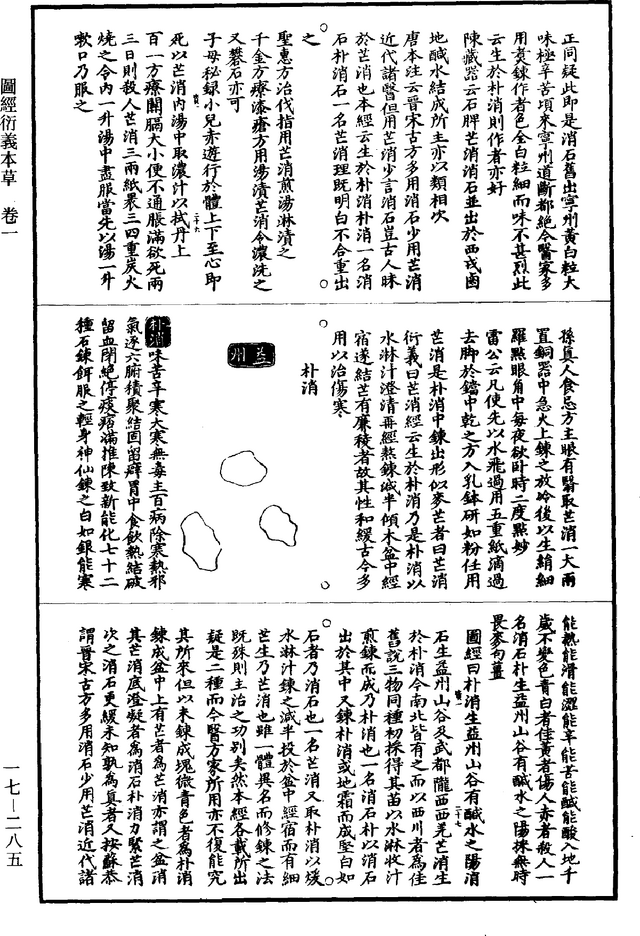 圖經衍義本草 卷一
一七—二八五
正同疑此即是消石舊出寧州黃白粒大
味極辛苦頃來寧州道斷都絕今醫家多
用煑鍊作者色全白粒細而味不甚烈此
云生於朴消則作者亦好
陳藏器云石脾芒消消石並出於西戎鹵
地鹹水結成所主亦以類相次
唐本注云晉宋古方多用消石少用芒消
近代諸醫但用芒消少言消石豈古人昧
於芒消也本經云生於朴消朴消一名消
石朴消石一名芒消理既明白不合重出
之
聖惠方治伐指用芒消煎湯淋漬之
千金方療漆瘡方用湯漬芒消令濃洗之
又礬石亦可
子母秘錄小兒赤遊行於體上下至心即
死以芒消內湯中取濃汁以拭丹上
百一方療關膈大小便不通脹滿欲死兩
三日則殺人芒消三兩紙褁三四重炭火
燒之令內一升湯中盡服當先以湯一升
嗽口乃服之
孫真人食忌方主眼有瞖取芒消一大兩
置銅器中急火上鍊之放冷後以生絹細
羅點眼角中每夜欲卧時二度點妙
雷公云凡使先以水飛過用五重紙滴過
去脚於鐺中乾之方入乳鉢研如粉任用
芒消是朴消中鍊出形似麥芒者曰芒消
衍義曰芒消經云生於朴消乃是朴消以
水淋汁澄清再經熬鍊减半傾木盆中經
宿遂結芒有廉稜者故其性和緩古今多
用以治傷寒
朴消
益州
朴消味苦辛寒大寒無毒主百病除寒熱邪
氣逐六腑積聚結固留癖胃中食飲熱結破
留血閉絕停痰痞滿推陳致新能化七十二
種石鍊餌服之輕身神仙鍊之白如銀能寒
能熱能滑能澀能辛能苦能鹹能酸入地千
歲不變色青白者佳黃者傷人赤者殺人一
名消石朴生益州山谷有鹹水之陽採無時
畏麥句薑
圖經曰朴消生益州山谷有鹹水之陽消
石生益州山谷及武都隴西西羌芒消生
於朴消今南北皆有之而以西川者為佳
舊說三物同種初採得其苗以水淋收汁
煎鍊而成乃朴消也一名消石朴以消石
出於其中又鍊朴消或地霜而成堅白如
石者乃消石也一名芒消又取朴消以煖
水淋汁鍊之减半投於盆中經宿而有細
芒生乃芒消也雖一體異名而修鍊之法
既殊則主治之功別矣然本經各載所出
疑是二種而今醫方家所用亦不復能究
其所來但以未鍊成塊微青色者為朴消
鍊成盆中上有芒者為芒消亦謂之盆消
其芒消底澄凝者為消石朴消力緊芒消
次之消石更緩未知孰為真者又按蘇恭
謂晉宋古方多用消石少用芒消近代諸